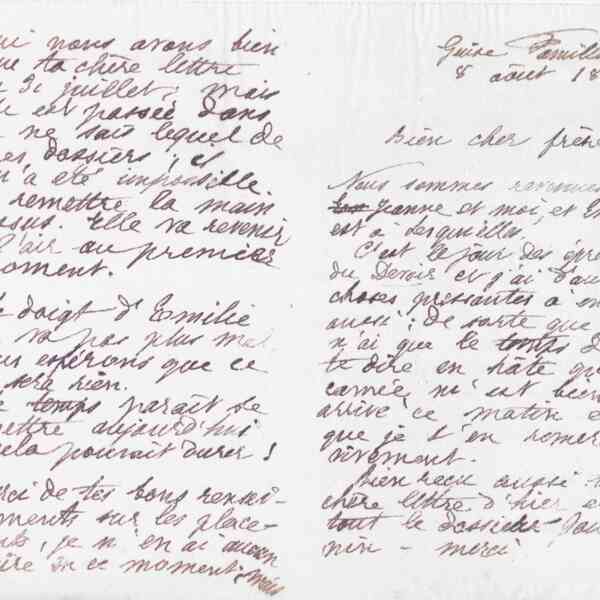 ui nous avons bien
ue ta chère lettre
31 juillet; mais
est passée dans
ne sait lequel de
es dossiers, et
n'a été impossible.
remettre la main
ssus. Elle va revenir
l'air au premier
moment.
doigt d'Emilie
va pas plus mal
us espérons que ce
sera rien.
temps parait se
mettre aujourd'hui
cela pourrait durer!
rci de tes bons rensei-
ments sur les place-
nts, je n'en ai aucun
ire en ce moment; mais
Guise Famili
8 août 18
Bien cher frère
Nous sommes revenues
Jeanne et moi, et E
est à Lesquielles.
C'est le jour des épre
du Devoir et j'ai d'au
choses pressantes à
aussi; de sorte que
n'ai que le temps d
te dire en hâte qu
carnée, m'est bien
arrivé ce matin e
que je t'en remer
vivement.
Bien reçu aussi
chère lettre d'hier et
tout le dossier
nin - merci